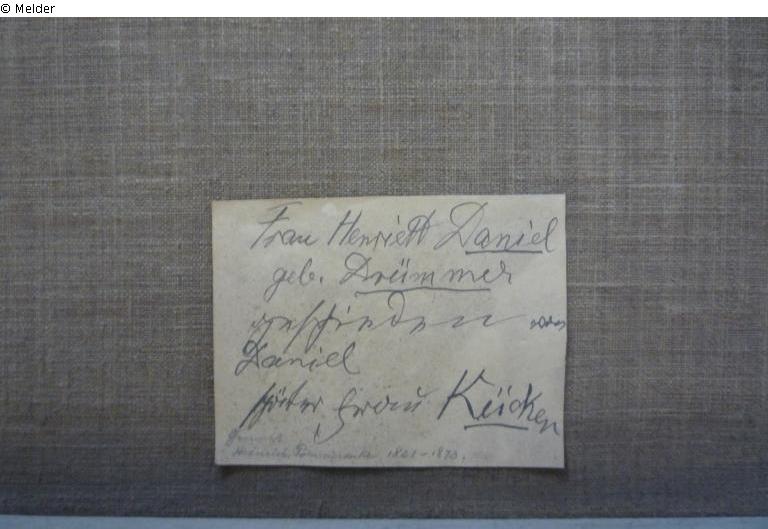 © Melder
Frau Henriett Daniel
geb. Drümmer
geschieden von
Daniel
später Frau Kücken
Heinrich 1801-1870.